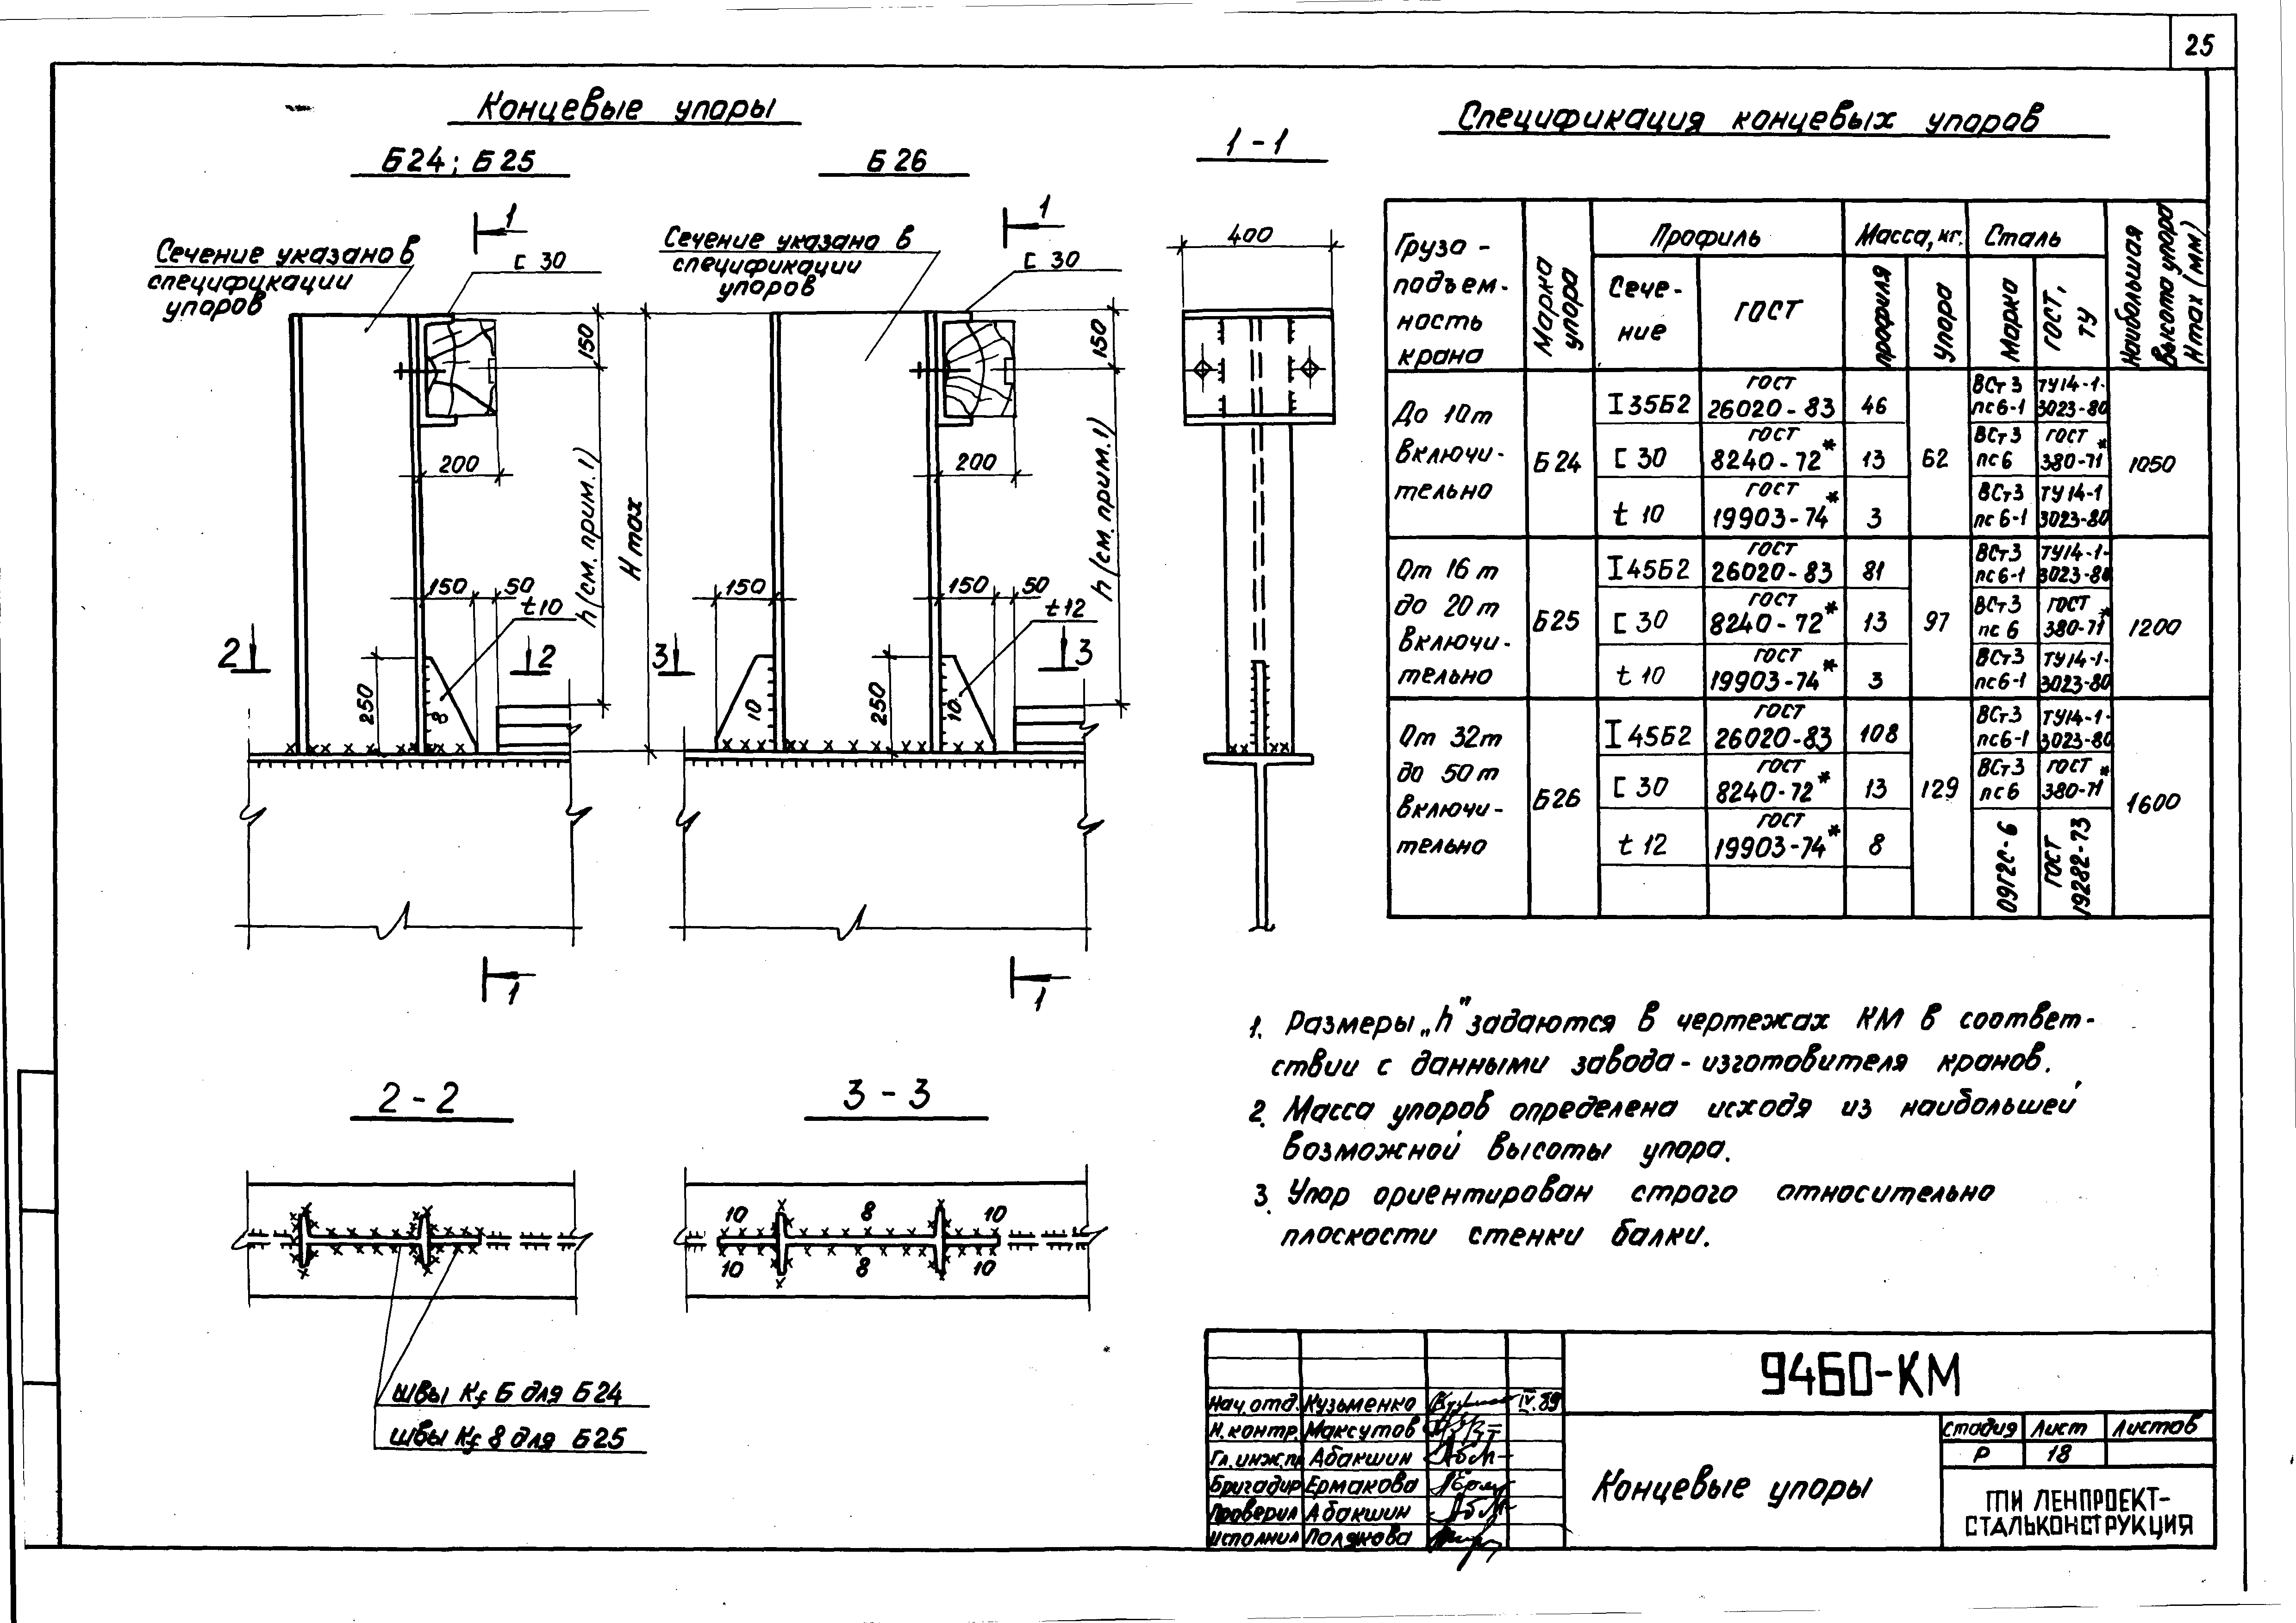 25
Концевые упоры
Б24; Б25
Б26
1-1
Спецификация концевых упоров
1
1
Сечение указано в
спецификации
упоров
[ 30
Сечение указано в
спецификации
упоров
[ 30
400
150
150
200
200
h (см. прим. 1)
H max
h (см. прим. 1)
150
50
t10
150
150
50
t12
2
2
3
3
250
8
10
250
10
1
1
Грузо-
подъем-
ность
крана
Марка
упора
Профиль
Масса, кг.
Сталь
Наибольшая
высота упора
Hmax (мм)
Сече-
ние
ГОСТ
профиля
упора
Марка
ГОСТ,
ТУ
До 10т
включи-
тельно
Б24
I 35Б2
ГОСТ
26020-83
46
62
ВСт3
пс6-1
ТУ14-1-
3023-80
1050
[ 30
ГОСТ
8240-72*
13
ВСт3
пс6
ГОСТ
380-71*
t 10
ГОСТ
19903-74*
3
ВСт3
пс6-1
ТУ14-1
3023-80
От 16т
до 20т
включи-
тельно
Б25
I 45Б2
ГОСТ
26020-83
81
97
ВСт3
пс6-1
ТУ14-1-
3023-80
1200
[ 30
ГОСТ
8240-72*
13
ВСт3
пс6
ГОСТ
380-71*
t 10
ГОСТ
19903-74*
3
ВСт3
пс6-1
ТУ14-1-
3023-80
От 32т
до 50т
включи-
тельно
Б26
I 45Б2
ГОСТ
26020-83
108
129
ВСт3
пс6-1
ТУ14-1-
3023-80
1600
[ 30
ГОСТ
8240-72*
13
ВСт3
пс6
ГОСТ
380-71*
t 12
ГОСТ
19903-74*
8
09Г2С-6
ГОСТ
19282-73
1. Размеры „h" задаются в чертежах КМ в соответ-
ствии с данными завода-изготовителя кранов.
2. Масса упоров определена исходя из наибольшей
возможной высоты упора.
3. Упор ориентирован строго относительно
плоскости стенки балки.
2-2
3-3
10
8
10
10
8
10
швы Kf 6 для Б24
швы Kf 8 для Б25
9460-КМ
Нач. отд. Кузьменко IV.89
Н. контр. Максутов
Гл. инж. пр Абакшин
Бригадир Ермакова
Проверил Абакшин
Исполнил Полякова
Концевые упоры
Стадия Лист Листов
Р 18
ГПИ ЛЕНПРОЕКТ-
СТАЛЬКОНСТРУКЦИЯ